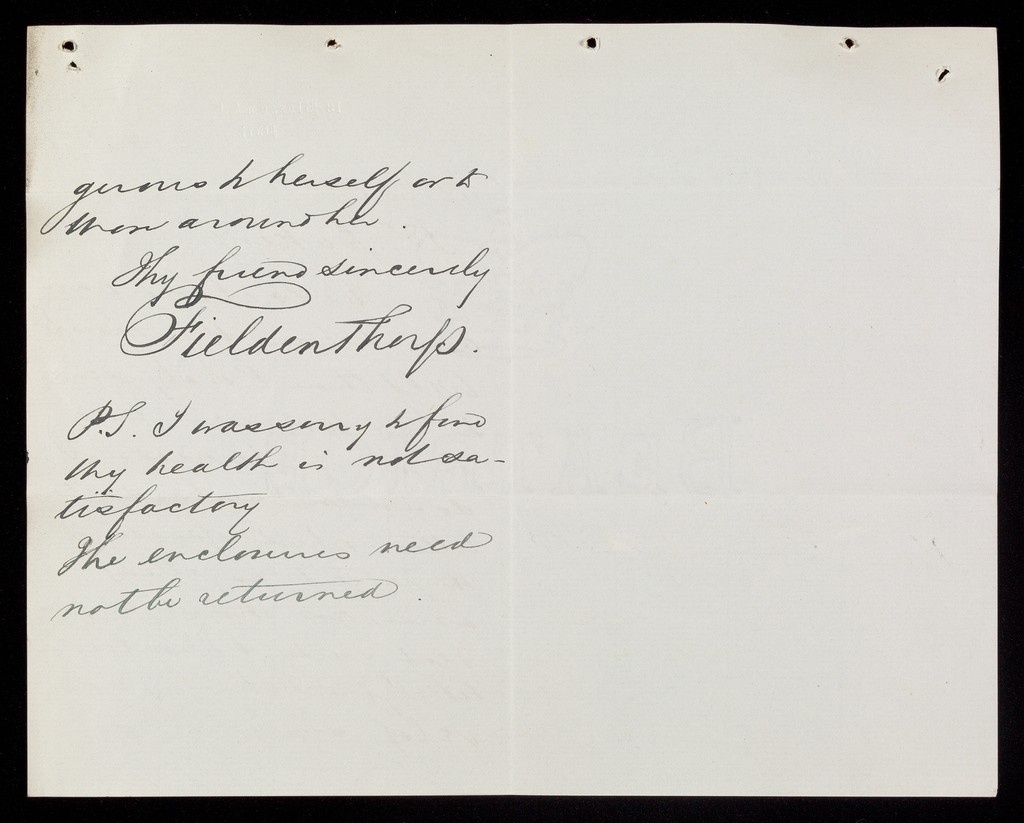 gerous to herself or to
those around her.
Thy friend sincerely
Fielden Thorp.
P.S. I was sorry to find
thy health is not sa-
tisfactory
The enclosures need
not be returned.